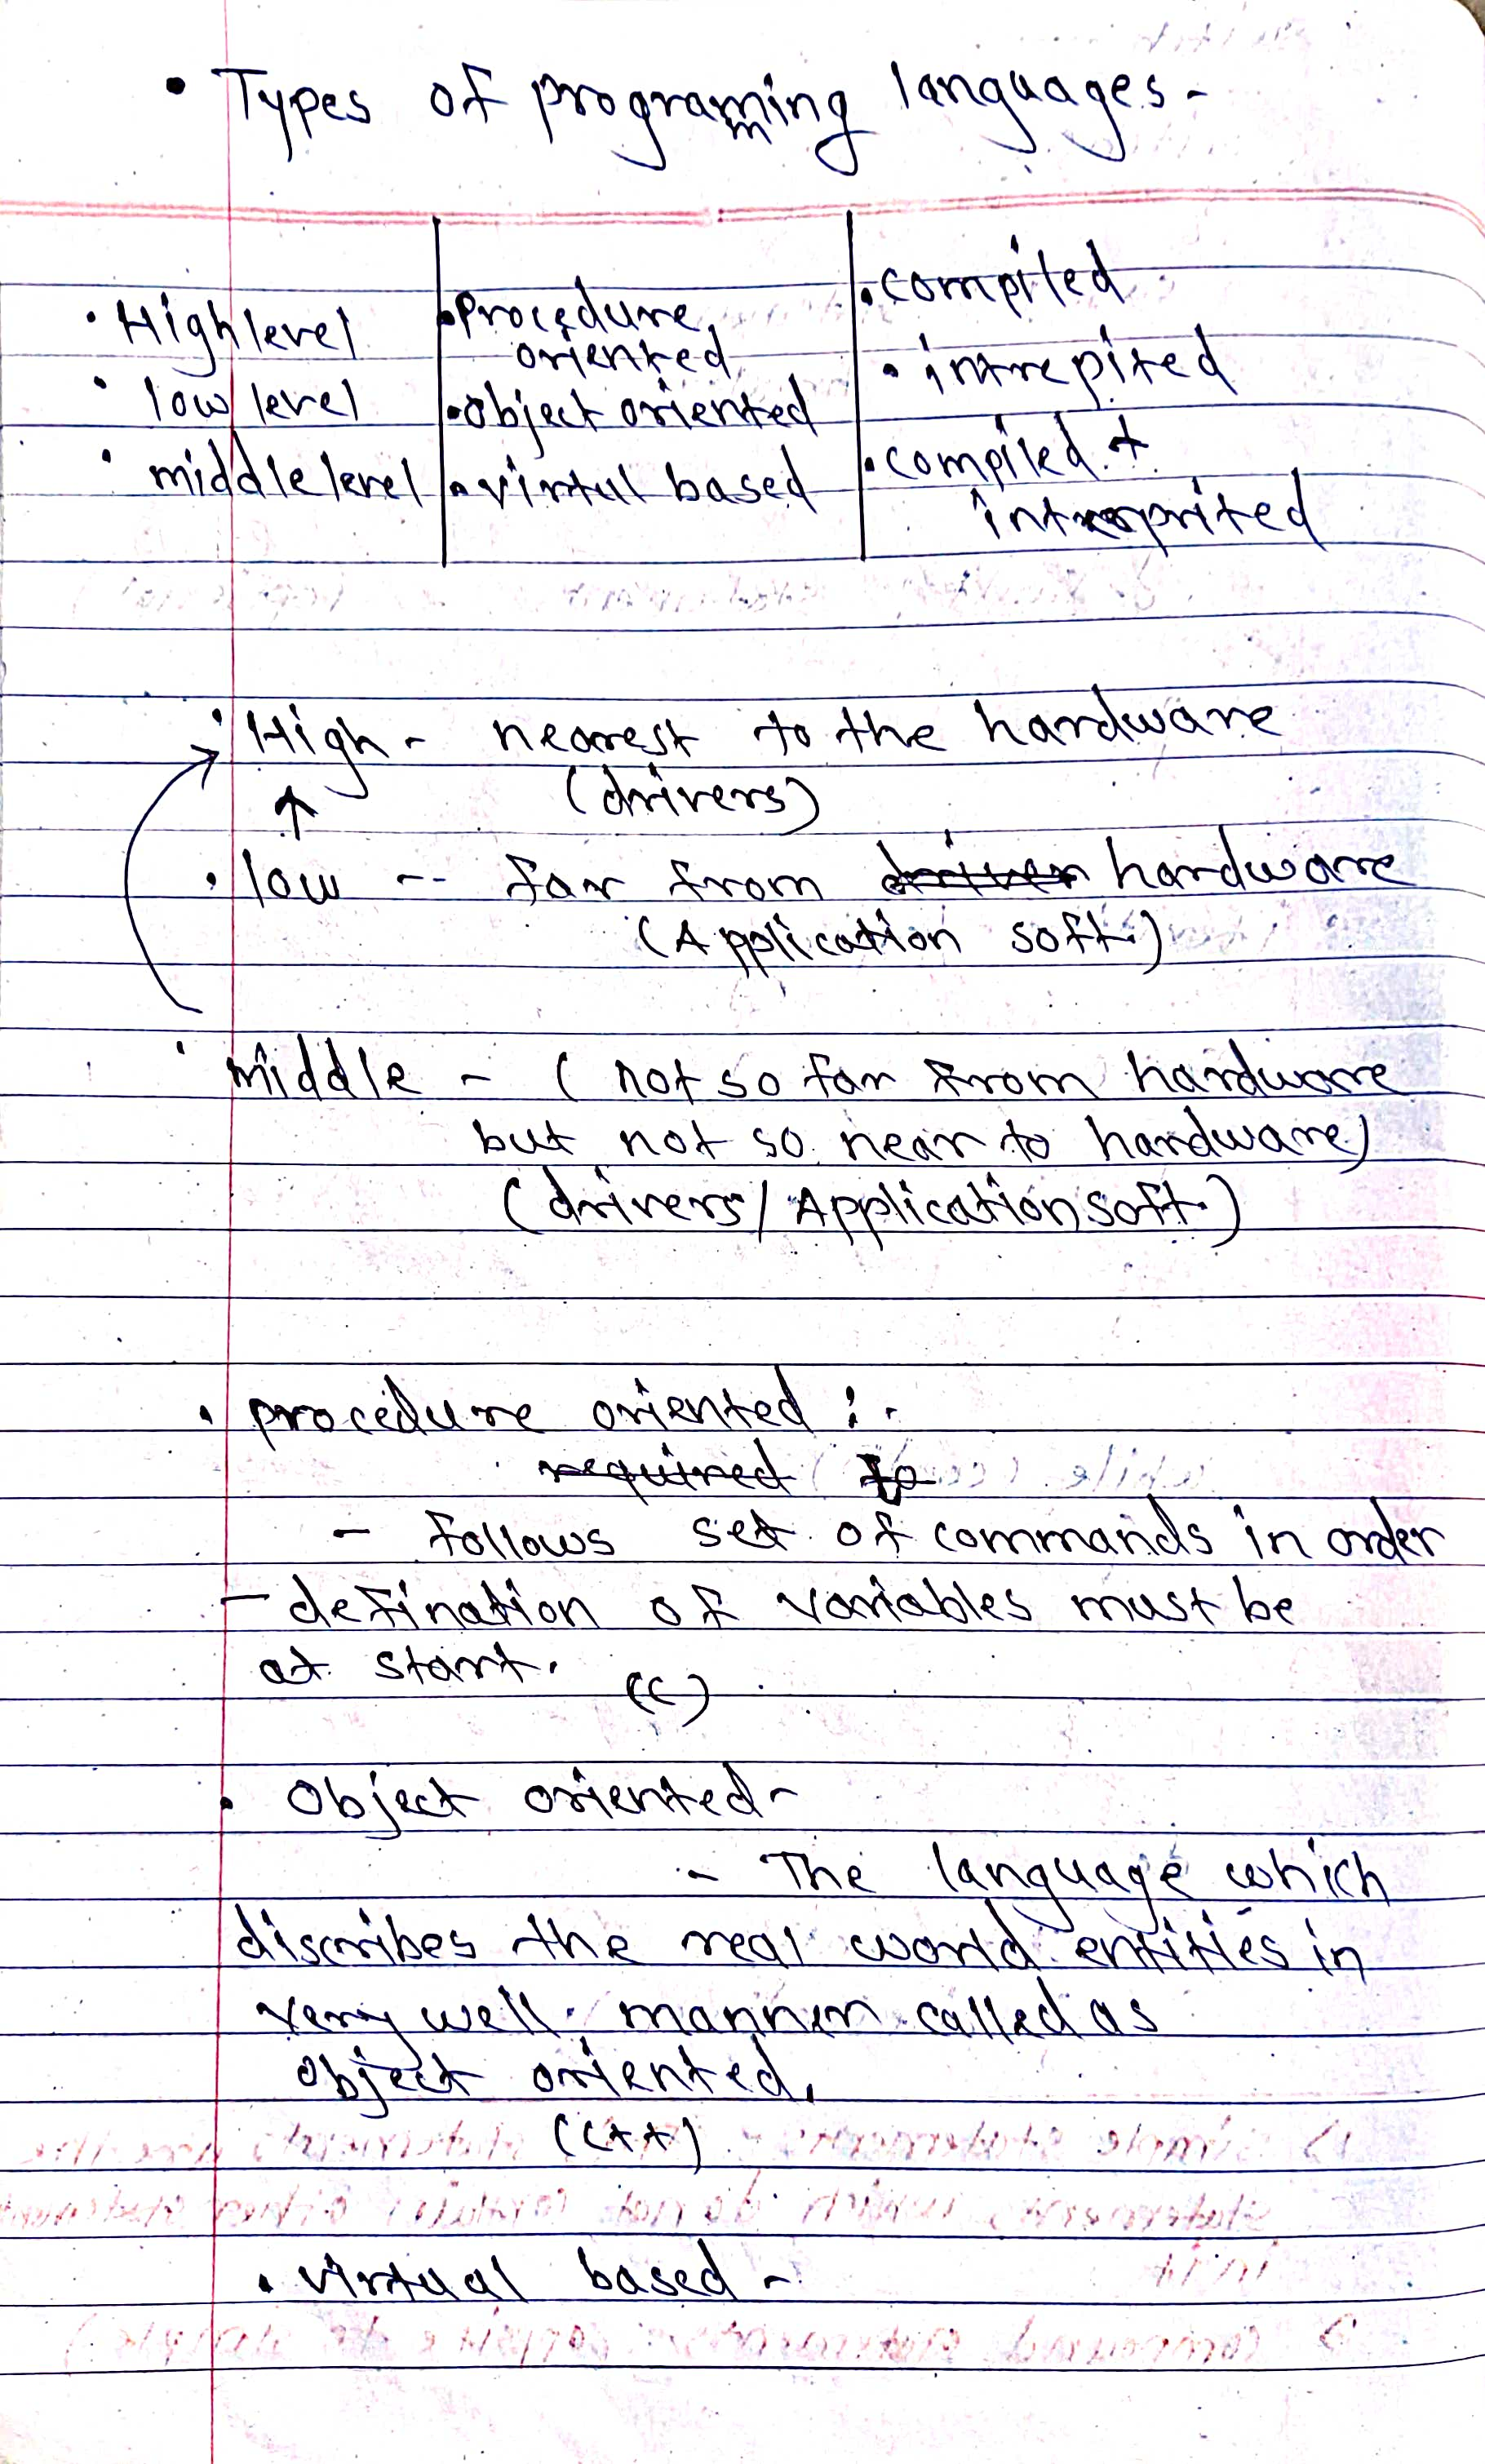 • Types of programming languages -
• High level
• low level
• middle level
• Procedure
oriented
• object oriented
• virtul based
• compiled
• intrepited
• compiled +
interprited
• High - nearest to the hardware
↑ (drivers)
• low -- far from driver hardware
(Application soft.)
• middle - ( not so far from hardware
but not so near to hardware)
(drivers/Application soft.)
• procedure oriented :-
required to
- follows set of commands in order
- defination of variables must be
at start. (C)
• Object oriented -
- The language which
discribes the real world entities in
very well manner called as
object oriented.
(C++)
• virtual based -